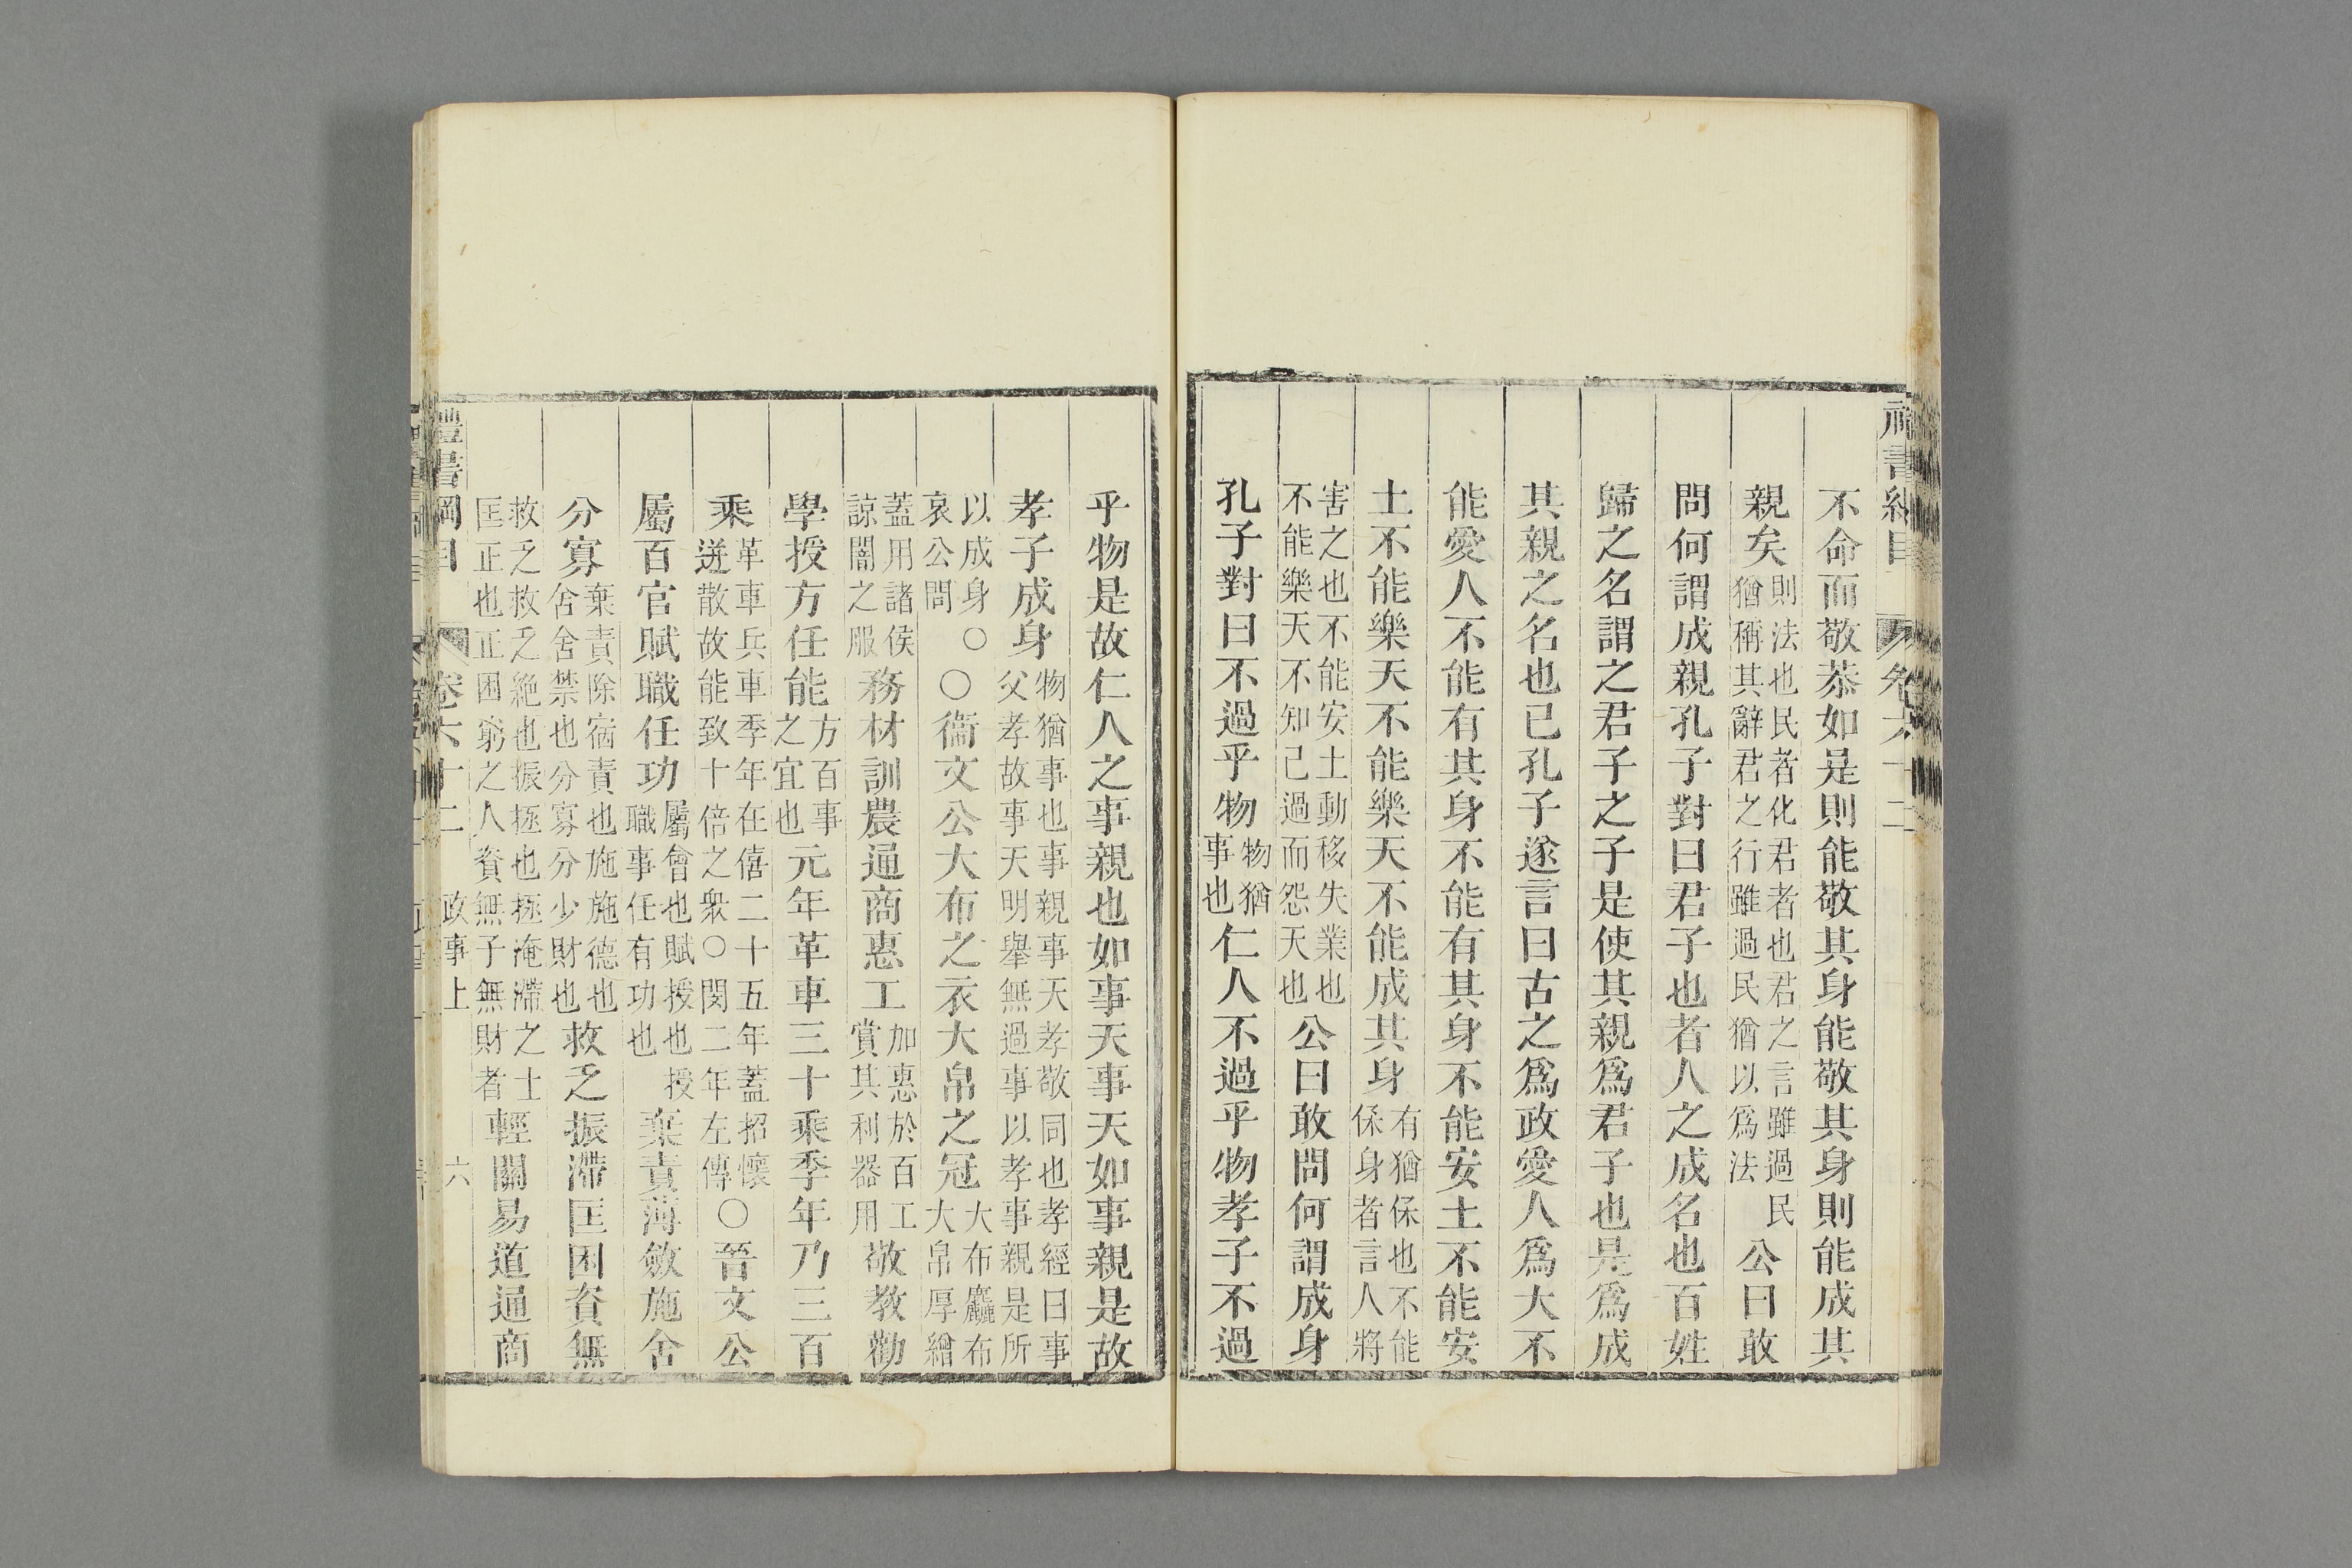 禮書綱目 卷六十二
不命而敬恭如是則能敬其身能敬其身則能成其
親矣則法也民者化君者也君之言雖過民猶稱其辭君之行雖過民猶以爲法公曰敢
問何謂成親孔子對曰君子也者人之成名也百姓
歸之名謂之君子之子是使其親爲君子也是爲成
其親之名也已孔子遂言曰古之爲政愛人爲大不
能愛人不能有其身不能有其身不能安土不能安
土不能樂天不能樂天不能成其身有猶保也不能保身者言人將
害之也不能安土動移失業也不能樂天不知己過而怨天也公曰敢問何謂成身
孔子對曰不過乎物物猶事也仁人不過乎物孝子不過
乎物是故仁人之事親也如事天事天如事親是故
孝子成身物猶事也事親事天孝敬同也孝經曰事父孝故事天明舉無過事以孝事親是所
以成身○哀公問○衞文公大布之衣大帛之冠大布麤布大帛厚繒
蓋用諸侯諒闇之服務材訓農通商惠工加惠於百工賞其利器用敬教勸
學授方任能方百事之宜也元年革車三十乘季年乃三百
乘革車兵車季年在僖二十五年蓋招懷迸散故能致十倍之衆○閔二年左傳○晉文公
屬百官賦職任功屬會也賦授也授職事任有功也棄責薄斂施舍
分寡棄責除宿責也施施德也舍舍禁也分寡分少財也救乏振滯匡困資無
救乏救乏絶也振拯也拯淹滯之士匡正也正困窮之人資無子無財者輕關易道通商
禮書綱目 卷六十二 政事上 六